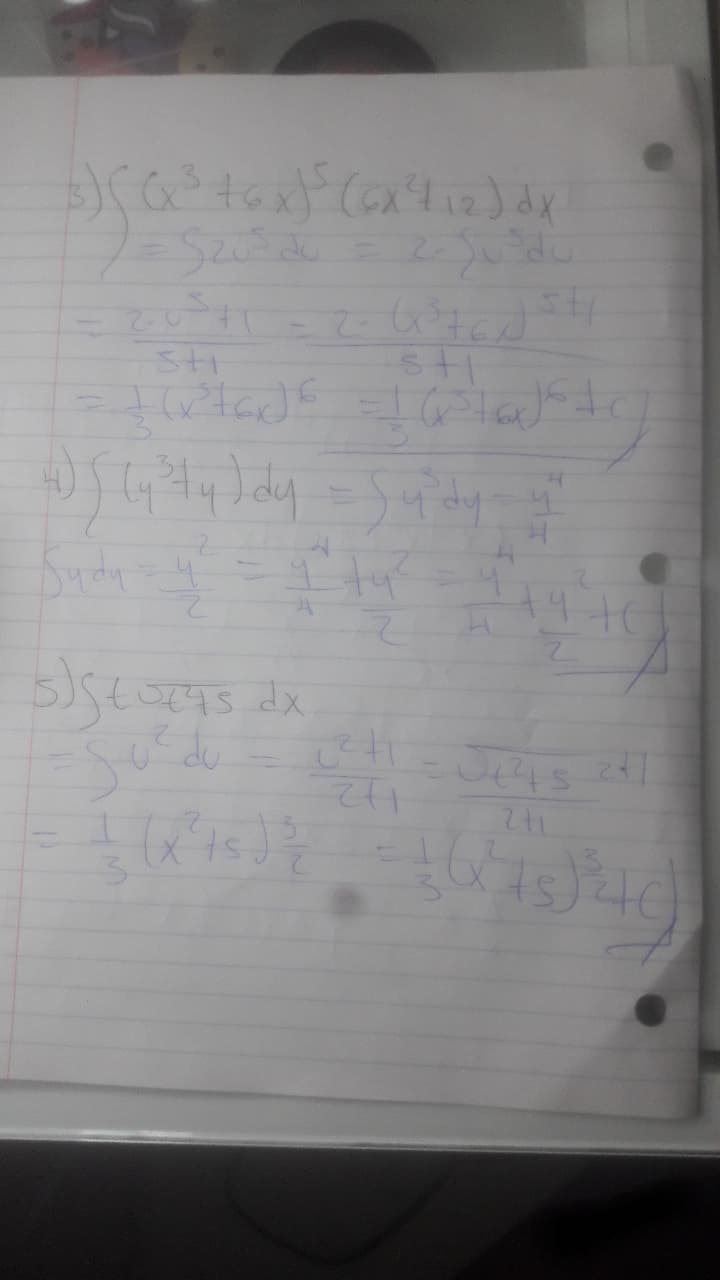 3) ∫ (x³ + 6x)⁵ (6x² + 12) dx
= ∫ 2u⁵ du = 2 · ∫ u⁵ du
= 2·u⁵⁺¹ / 5+1 = 2·(x³+6x)⁵⁺¹ / 5+1
= 1/3 (x³+6x)⁶ = 1/3 (x³+6x)⁶ + c
4) ∫ (y³+y) dy = ∫ y³ dy = y⁴/4
∫ y dy = y²/2 = y⁴/4 + y²/2 = y⁴/4 + y²/2 + c
5) ∫ t √t²+5 dx
= ∫ u² du = u²⁺¹ / 2+1 = √t²+5 ²⁺¹ / 2+1
= 1/3 (x²+5) 3/2 = 1/3 (x²+5) 3/2 + c